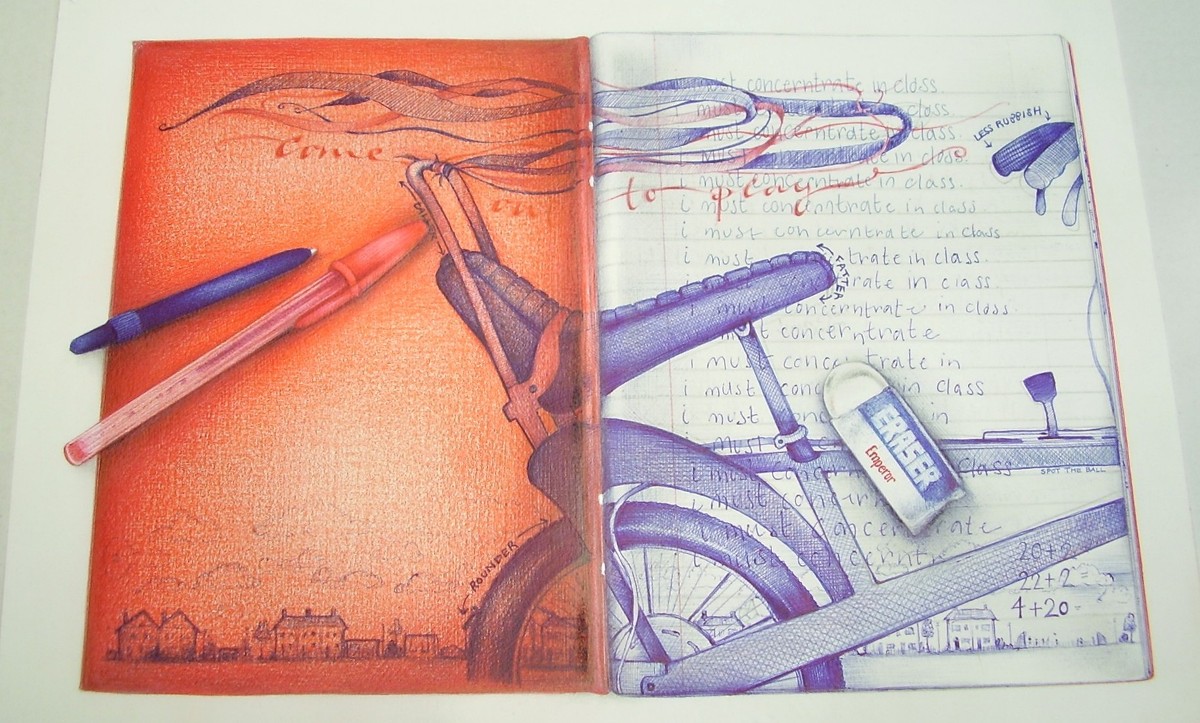 come
out
to play
i must concerntrate in class.
i must concerntrate in class.
i must concerntrate in class.
i must concerntrate in class.
i must concerntrate in class.
i must concerntrate in class.
i must concerntrate in class
i must trate in class.
i must rate in class.
i must concerntrate in class.
must concerntrate
i must concerntrate in
i must conc in class
i must conc in
i must
i must concern class
i must concern
i must concerntrate
i must concerntr
LESS RUBBISH
FATTER
ERASER
Emperor
SPOT THE BALL
ROUNDER
20+2
22+2
4+20